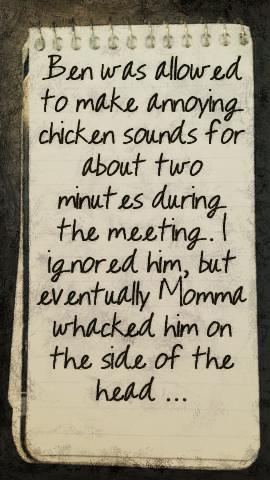 Ben was allowed
to make annoying
chicken sounds for
about two
minutes during
the meeting. I
ignored him, but
eventually Momma
whacked him on
the side of the
head ...